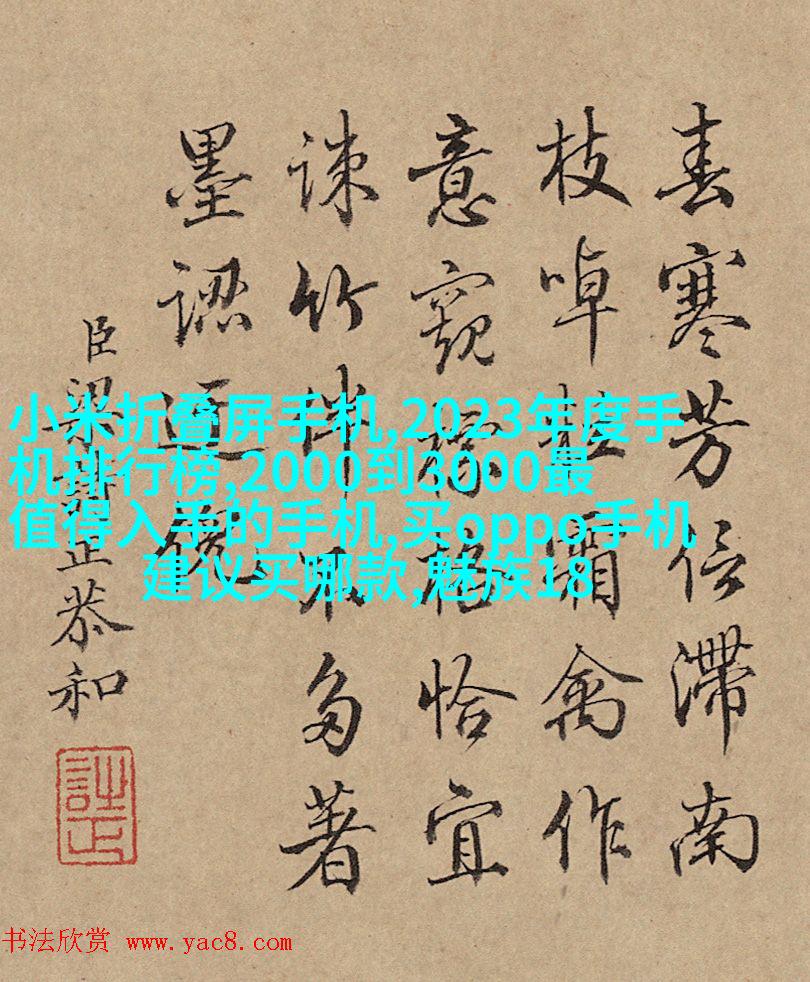 春寒芳信滯南
枝啅粒霜禽作
意窺格恰宜
疎竹伴不多著
墨認逋
臣梁詩正恭和
詩正
小米折叠屏手机,2023年度手
机排行榜,2000到3000最
值得入手的手机,买oppo手机
建议买哪款,魅族18
书法欣赏 www.yac8.com